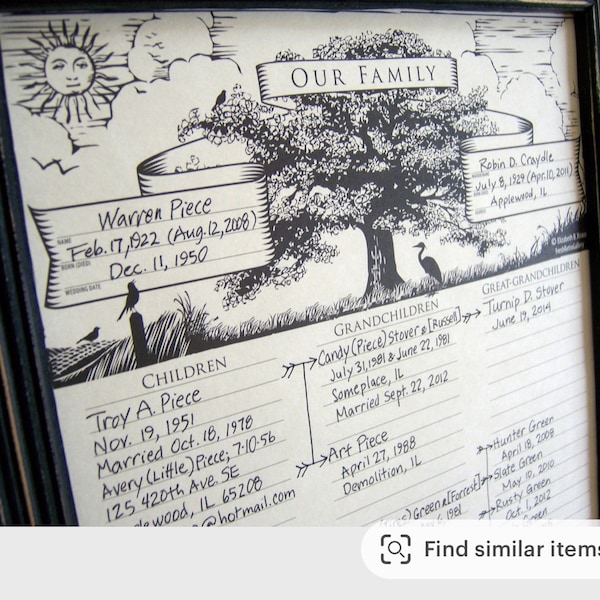 OUR FAMILY
Warren Piece
NAME
Feb. 17, 1922 (Aug. 12, 2008)
BORN (DIED)
Dec. 11, 1950
WEDDING DATE
Robin D. Craydle
July 8, 1929 (Apr. 10, 2011)
Applewood, IL
© Elizabeth B.
CHILDREN
Troy A. Piece
Nov. 19, 1951
Married Oct. 18, 1978
Avery (Little) Piece; 7-10-56
125 420th Ave. SE
IL 65208
@hotmail.com
GRANDCHILDREN
Candy (Piece) Stover & [Russell]
July 31, 1981 & June 22, 1981
Someplace, IL
Married Sept. 22, 2012
Art Piece
April 27, 1988
Demolition, IL
Green & [Forrest]
1981
GREAT-GRANDCHILDREN
Turnip D. Stover
June 19, 2014
Hunter Green
April 18, 2008
Slate Green
May 10, 2010
Rusty Green
Oct. 1, 2012
Green
Find similar items